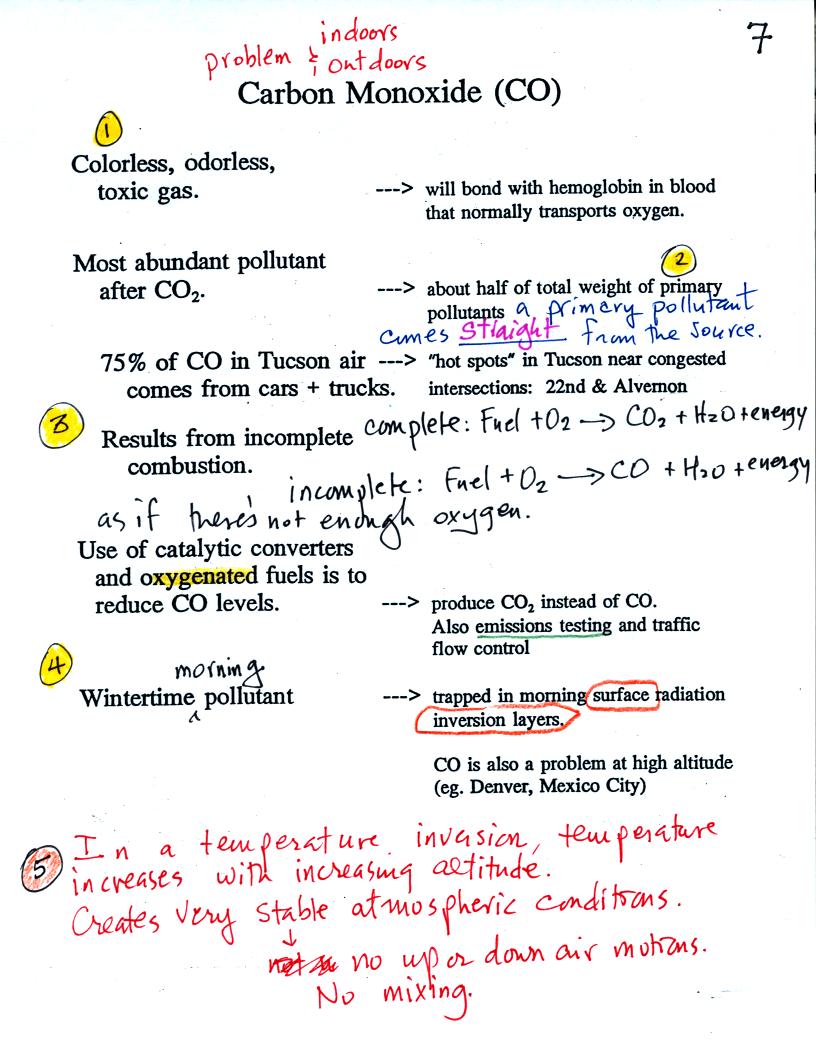 7
indoors
problem & outdoors
Carbon Monoxide (CO)
1
Colorless, odorless,
toxic gas.
---> will bond with hemoglobin in blood
that normally transports oxygen.
Most abundant pollutant
after CO₂.
2
---> about half of total weight of primary
pollutants a primary pollutant
comes straight from the source.
75% of CO in Tucson air
comes from cars + trucks.
---> "hot spots" in Tucson near congested
intersections: 22nd & Alvernon
3
Results from incomplete
combustion.
complete: Fuel + O₂ → CO₂ + H₂O + energy
incomplete: Fuel + O₂ → CO + H₂O + energy
as if there's not enough oxygen.
Use of catalytic converters
and oxygenated fuels is to
reduce CO levels.
---> produce CO₂ instead of CO.
Also emissions testing and traffic
flow control
4
morning
Wintertime ^ pollutant
---> trapped in morning surface radiation
inversion layers.
CO is also a problem at high altitude
(eg. Denver, Mexico City)
5 In a temperature inversion, temperature
increases with increasing altitude.
Creates very stable atmospheric conditions.
↓
no up or down air motions.
No mixing.